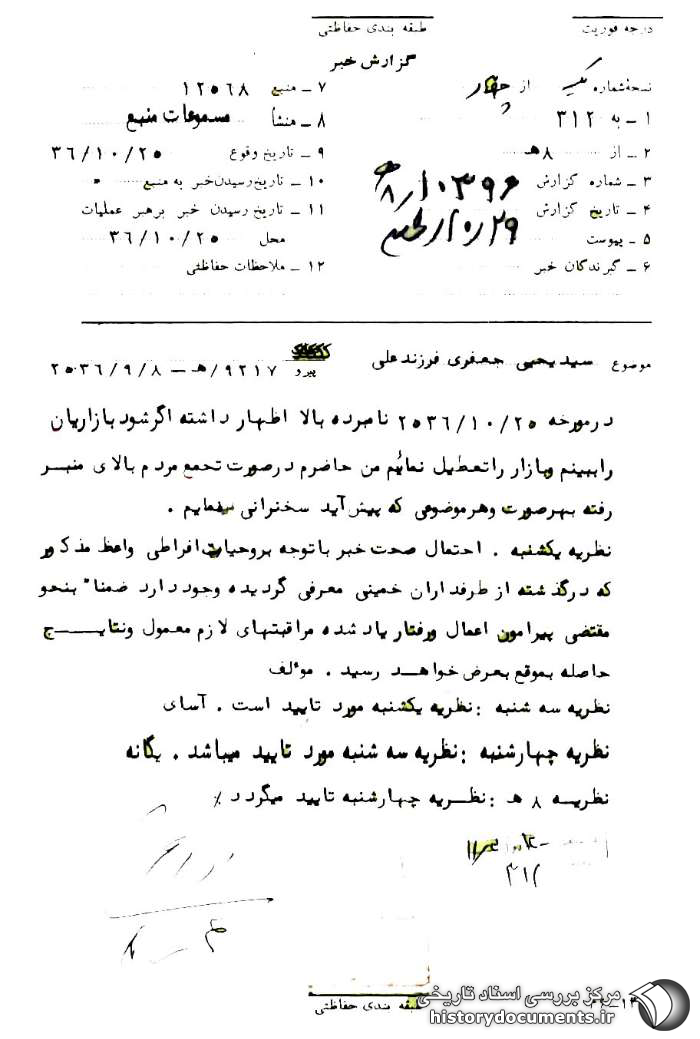 درجه فوریت
طبقه بندی حفاظتی
گزارش خبر
نسخه شماره یک از چهار
۱ ـ به ۳۱۲
۲ ـ از ۸هـ
۳ ـ شماره گزارش ۱۰۳۹۶/۸هـ
۴ ـ تاریخ گزارش
۵ ـ پیوست
۶ ـ گیرندگان خبر
۷ ـ منبع ۱۲۵۶۸
۸ ـ منشأ مسموعات منبع
۹ ـ تاریخ وقوع ۳۶/۱۰/۲۵
۱۰ ـ تاریخ رسیدن خبر به منبع
۱۱ ـ تاریخ رسیدن خبر برهبر عملیات
محل ۳۶/۱۰/۲۵
۱۲ ـ ملاحظات حفاظتی
موضوع سید یحیی جعفری فرزند علی
پیرو ۹۲۱۷/هـ ـ ۲۵۳۶/۹/۸
در مورخه ۲۵۳۶/۱۰/۲۵ نامبرده بالا اظهار داشته اگر شود بازاریان
را ببینم و بازار را تعطیل نمائیم من حاضرم در صورت تجمع مردم بالای منبر
رفته بهرصورت و هر موضوعی که پیش آید سخنرانی مینمایم .
نظریه یکشنبه . احتمال صحت خبر با توجه بروحیات افراطی واعظ مذکور
که درگذشته از طرفداران خمینی معرفی گردیده وجود دارد ضمنا" بنحو
مقتضی پیرامون اعمال ورفتار یاد شده مراقبتهای لازم معمول ونتایـــج
حاصله بموقع بعرض خواهد رسید . مؤلف
نظریه سه شنبه : نظریه یکشنبه مورد تایید است . آسای
نظریه چهارشنبه : نظریه سه شنبه مورد تایید میباشد . یگانه
نظریـه ۸ هـ : نظـریه چهارشنبه تایید میگردد ٪
۳۱۲
طبقه بندی حفاظتی
مرکز بررسی اسناد تاریخی
historydocuments.ir